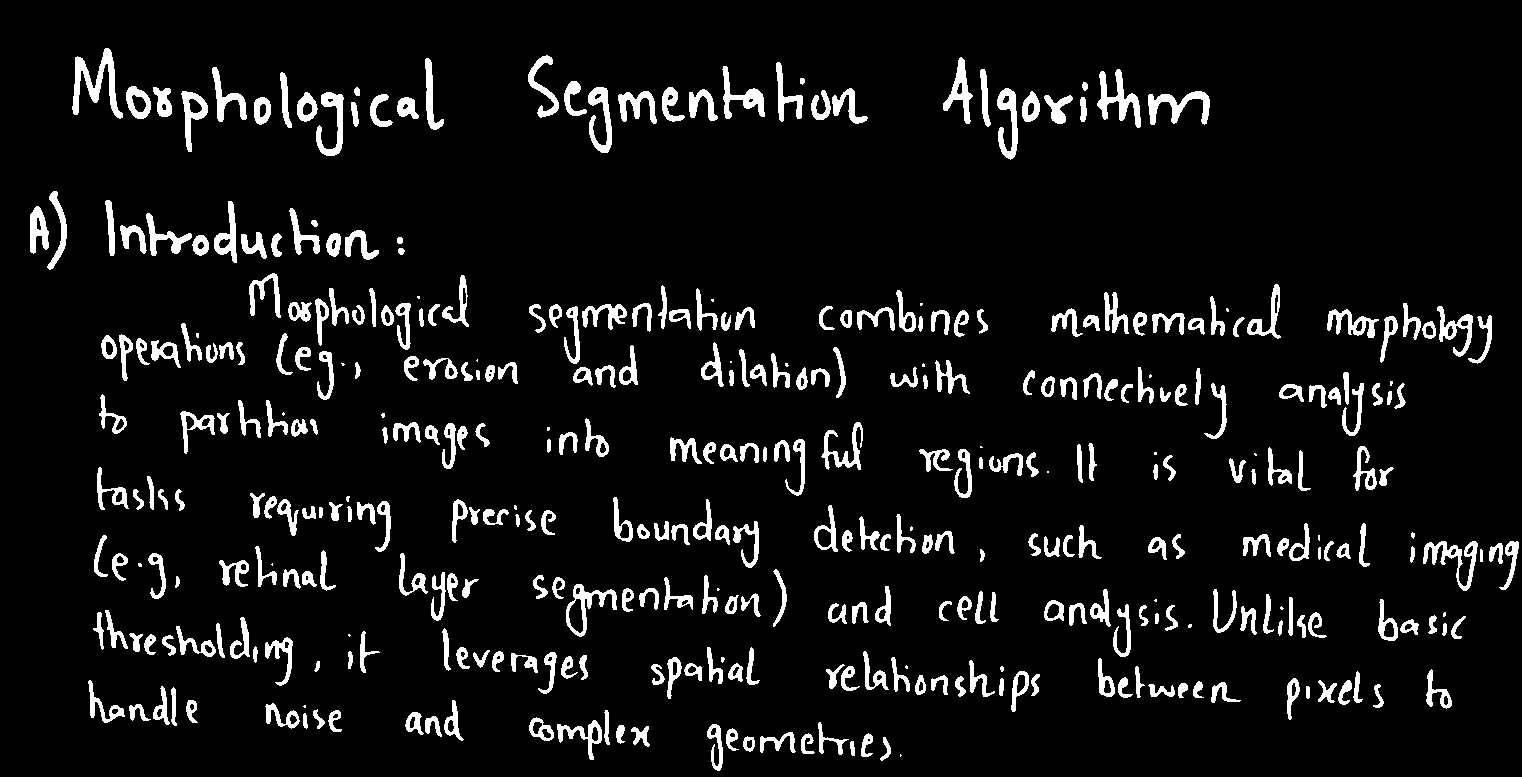 Morphological Segmentation Algorithm
A) Introduction :
Morphological segmentation combines mathematical morphology
operations (eg., erosion and dilation) with connectively analysis
to partition images into meaningful regions. It is vital for
tasks requiring precise boundary detection, such as medical imaging
(e.g, retinal layer segmentation) and cell analysis. Unlike basic
thresholding, it leverages spatial relationships between pixels to
handle noise and complex geometries.